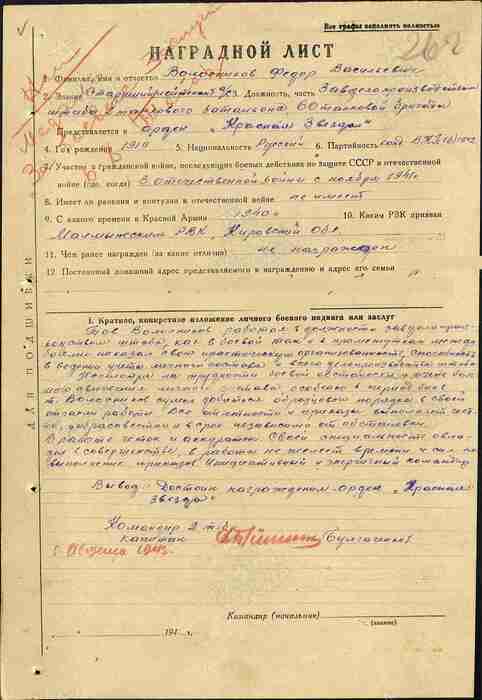 Все графы заполнять полностью
262
НАГРАДНОЙ ЛИСТ
1. Фамилия, имя и отчество Волосников Федор Васильевич
2. Звание Старший Должность, часть Завделопроизводством
штаба танкового батальона, 60 танковой бригады
Представляется к орден „Красная Звезда"
4. Год рождения 1919 5. Национальность Русский 6. Партийность канд. ВКП(б)
7. Участие в гражданской войне, последующих боевых действиях по защите СССР и отечественной
войне (где, когда) В отечественной войне с ноября 1941г
8. Имеет ли ранения и контузии в отечественной войне не имеет
9. С какого времени в Красной Армии 1940г 10. Каким РВК призван
Малмыжским РВК, Кировской Обл.
11. Чем ранее награжден (за какие отличия) не награжден
12. Постоянный домашний адрес представляемого к награждению и адрес его семьи
ДЛЯ ПОДШИВКИ
I. Краткое, конкретное изложение личного боевого подвига или заслуг
Тов Волосников работая в должности завделопроиз-
водством штаба, как в боевой так и в промежутках между
боями показал свою практическую организованность, способность
в ведении учета личного состава и всего делопроизводства штаба
Несмотря на трудности боевой обстановки и очень боль-
шого движения личного состава, особенно в период боев
т. Волосников сумел добиться образцового порядка в своей
работе. Все отчетности и приказы выполняет чест-
но, добросовестно и в срок независимо от обстановки.
В работе четок и аккуратен. Своей специальностью овла-
дел в совершенстве, в работе не жалеет времени и сил на
выполнение приказов. Инициативный и энергичный командир
Вывод: Достоин награждения орден „Красная
Звезда"
Командир 2 т.б.
капитан
Августа 1943г.
Командир (начальник)
(звание)
194 г.